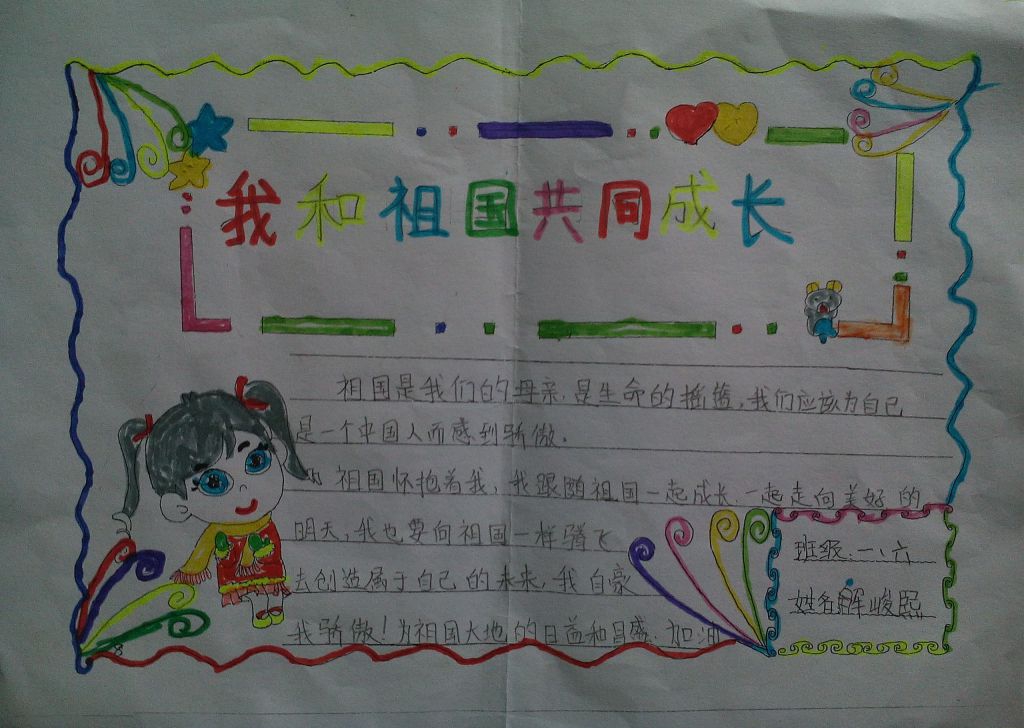 我和祖国共同成长
祖国是我们的母亲,是生命的摇篮,我们应该为自己
是一个中国人而感到骄傲。
祖国怀抱着我,我跟随祖国一起成长.一起走向美好的
明天,我也要向祖国一样腾飞
去创造属于自己的未来,我自豪
我骄傲!为祖国大地的日益和昌盛:加油
班级:一、六
姓名解峻熙